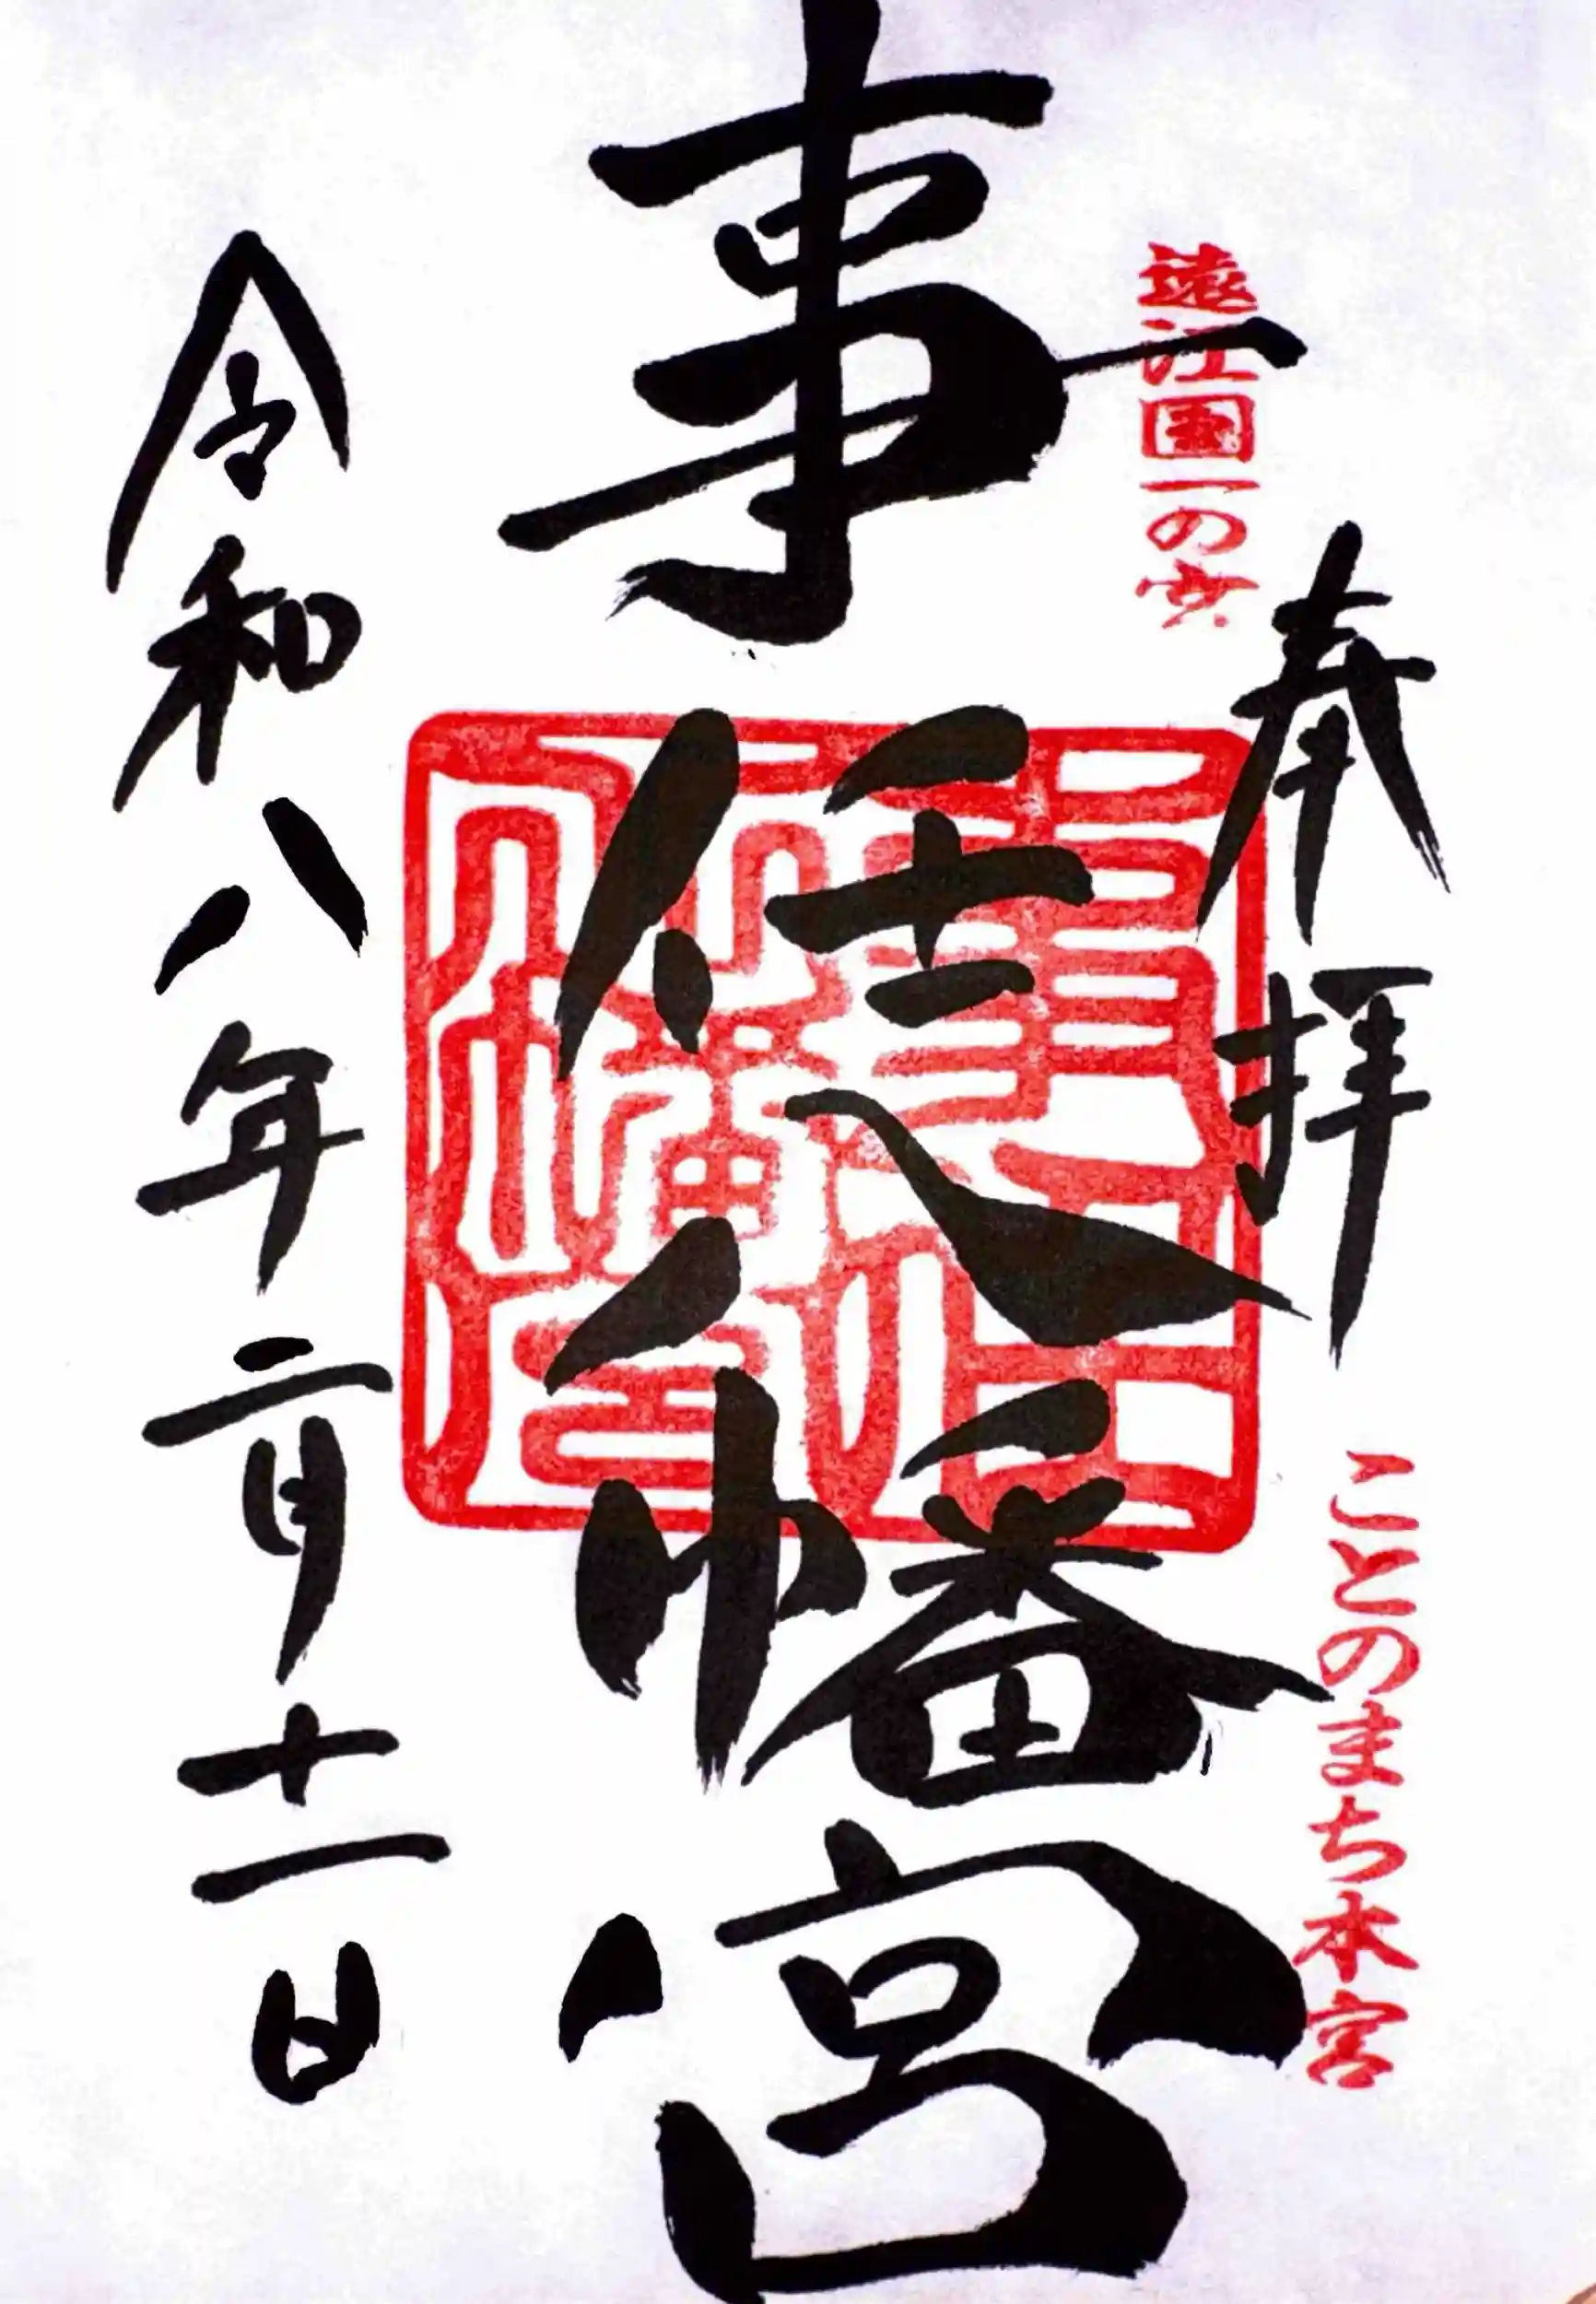 遠江国一の宮
奉拝
ことのまち本宮
事任八幡宮
令和八年二月十一日